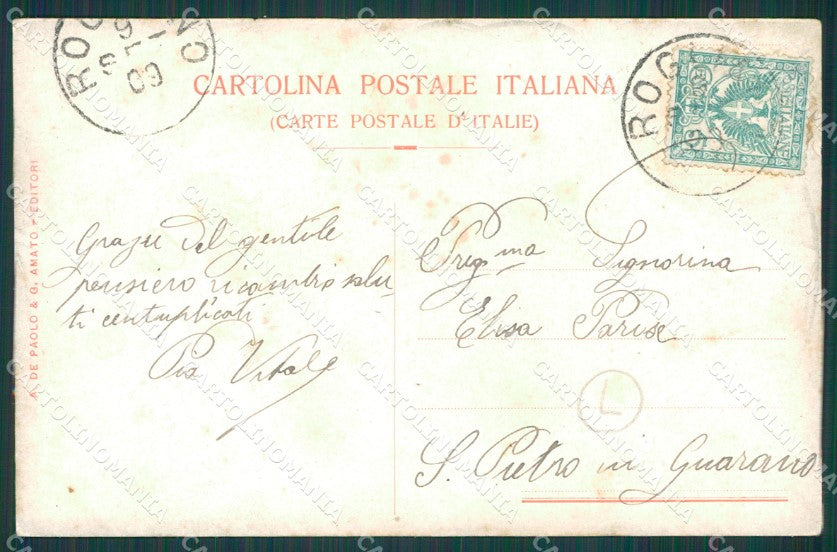 ROG
CARTOLINA POSTALE ITALIANA
(CARTE POSTALE D'ITALIE)
ROG
A. DE PAOLO & G. AMATO - EDITORI
Grazie del gentile
pensiero ricambio salu-
ti centuplicati
Pia Vitale
Pregma Signorina
Elisa Parise
L
S. Pietro in Guarano
CARTOLINOMANIA